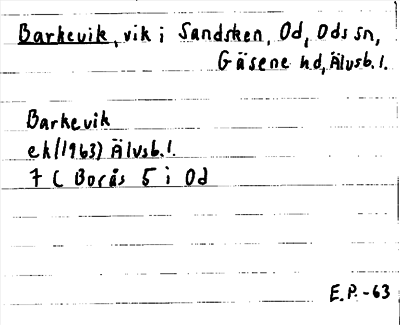 Barkevik, vik i Sandsken, Od, Ods sn,
Gäsene hd, Älvsb. l.
Barkevik
ek (1963) Älvsb. l.
7 C Borås 5 i Od
E.P.-63